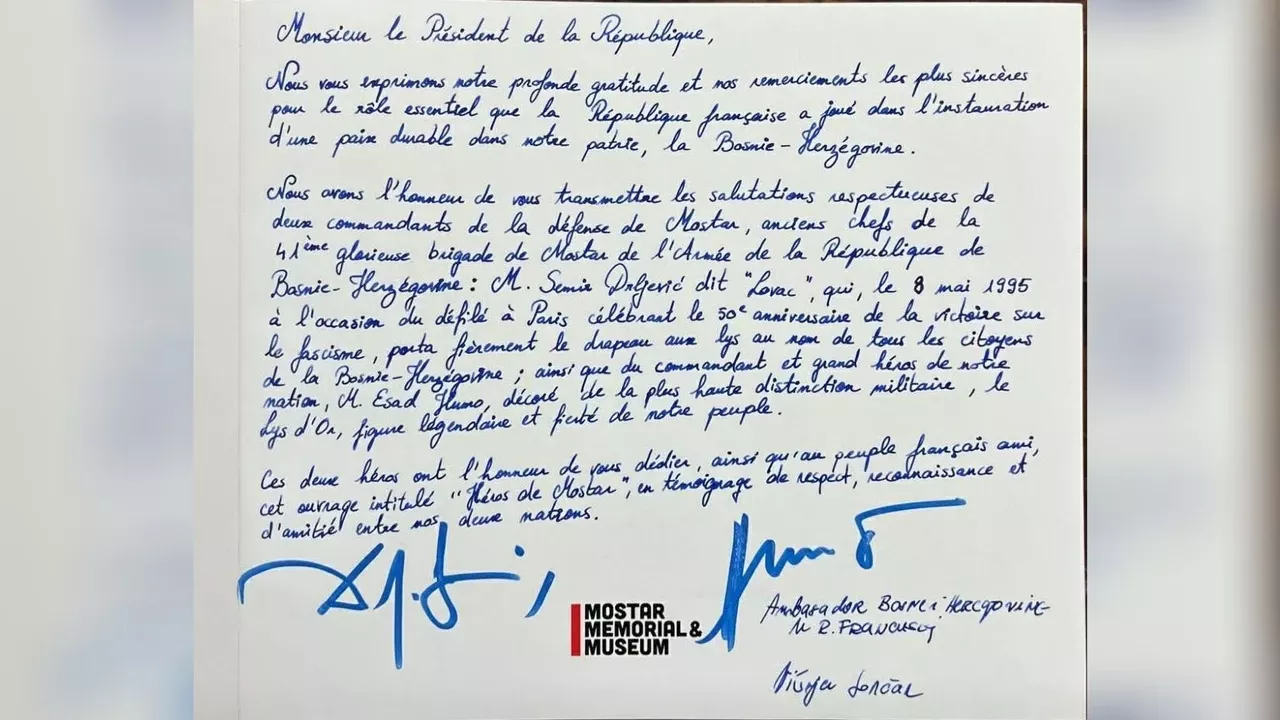 Monsieur le Président de la République,
Nous vous exprimons notre profonde gratitude et nos remerciements les plus sincères
pour le rôle essentiel que la République française a joué dans l'instauration
d'une paix durable dans notre patrie, la Bosnie-Herzégovine.
Nous avons l'honneur de vous transmettre les salutations respectueuses de
deux commandants de la défense de Mostar, anciens chefs de la
41ème glorieuse brigade de Mostar de l'Armée de la République de
Bosnie-Herzégovine : M. Semir Drljević dit "Lovac", qui, le 8 mai 1995
à l'occasion du défilé à Paris célébrant le 50e anniversaire de la victoire sur
le fascisme, porta fièrement le drapeau aux lys au nom de tous les citoyens
de la Bosnie-Herzégovine ; ainsi que du commandant et grand héros de notre
nation, M. Esad Humo, décoré de la plus haute distinction militaire, le
Lys d'Or, figure légendaire et fierté de notre peuple.
Ces deux héros ont l'honneur de vous dédier, ainsi qu'au peuple français ami,
cet ouvrage intitulé "Héros de Mostar", en témoignage de respect, reconnaissance et
d'amitié entre nos deux nations.
MOSTAR
MEMORIAL &
MUSEUM
Ambasador Bosne i Hercegovine
u R. Francuskoj